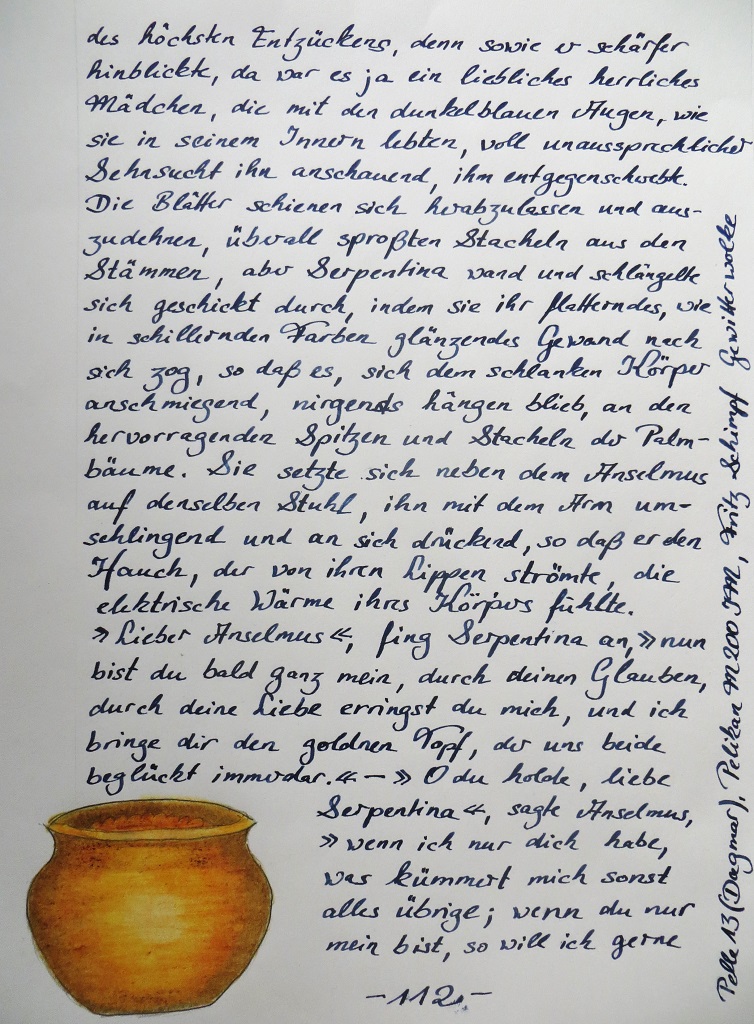 des höchsten Entzückens, denn sowie er schärfer
hinblickte, da war es ja ein liebliches herrliches
Mädchen, die mit den dunkelblauen Augen, wie
sie in seinem Innern lebten, voll unaussprechlicher
Sehnsucht ihn anschauend, ihm entgegenschwebte.
Die Blätter schienen sich herabzulassen und aus-
zudehnen, überall sproßten Stacheln aus den
Stämmen, aber Serpentina wand und schlängelte
sich geschickt durch, indem sie ihr flatterndes, wie
in schillernden Farben glänzendes Gewand nach
sich zog, so daß es, sich dem schlanken Körper
anschmiegend, nirgends hängen blieb, an den
hervorragenden Spitzen und Stacheln der Palm-
bäume. Sie setzte sich neben dem Anselmus
auf denselben Stuhl, ihn mit dem Arm um-
schlingend und an sich drückend, so daß er den
Hauch, der von ihren Lippen strömte, die
elektrische Wärme ihres Körpers fühlte.
»Lieber Anselmus«, fing Serpentina an, »nun
bist du bald ganz mein, durch deinen Glauben,
durch deine Liebe erringst du mich, und ich
bringe dir den goldnen Topf, der uns beide
beglückt immerdar.« — »O du holde, liebe
Serpentina«, sagte Anselmus,
»wenn ich nur dich habe,
was kümmert mich sonst
alles übrige; wenn du nur
mein bist, so will ich gerne
-112.-
Pelle 13 (Dagmar), Pelikan M200 IM, Fritz Schimpf Gewitterwolke